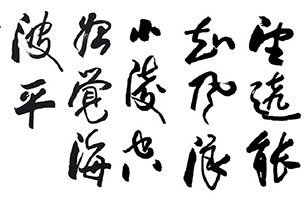 望遠能
知风浪
小凌空
始觉海
波平